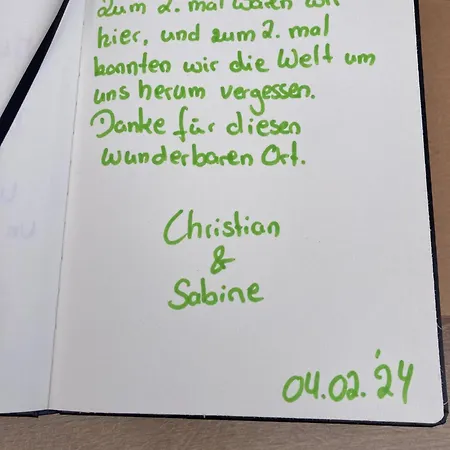 Zum 2. mal waren wir
hier, und zum 2. mal
konnten wir die Welt um
uns herum vergessen.
Danke für diesen
wunderbaren Ort.
Christian
&
Sabine
04.02.'24